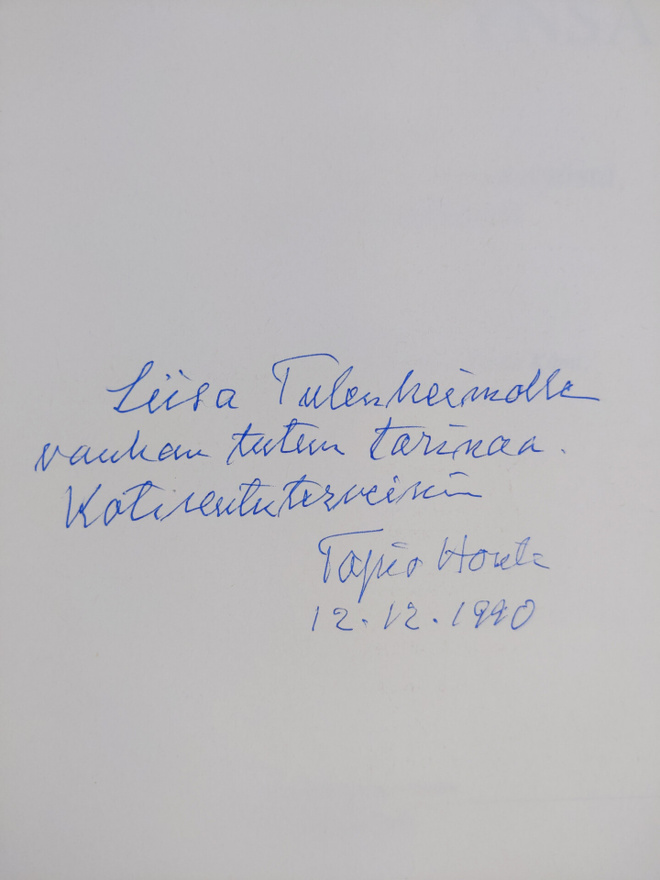 Liisa Tulenheimolle
vanhan tutun tarinaa.
Kotiseututerveisin
Tapio Horila
12.12.1990